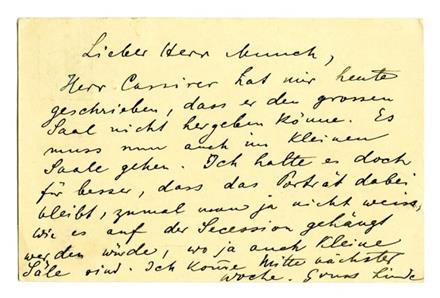 Lieber Herr Munch,
Herr Cassirer hat mir heute
geschrieben, dass er den grossen
Saal nicht hergeben könne. Es
muss nun auch im kleinen
Saale gehen. Ich halte es doch
für besser, dass das Porträt dabei
bleibt, zumal man ja nicht weiss,
wie es auf der Secession gehängt
werden würde, wo ja auch kleine
Säle sind. Ich komme Mitte nächster
Woche. Gruss Linde